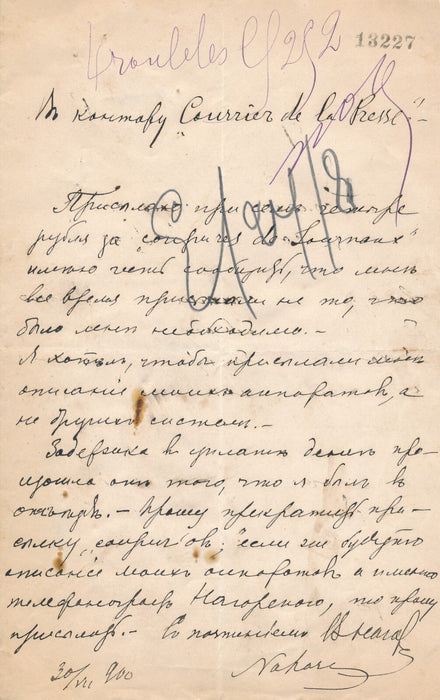 4 roubles
13227
Въ контору "Courrier de la Presse".-
Присылаю при семъ четыре
рубля за "coupures de Journaux"
имѣю честь сообщить, что мнѣ
все время присылали не то, что
было мнѣ необходимо.-
Я хотѣлъ, чтобы присылали мнѣ
описаніе моихъ аппаратовъ, а
не другихъ системъ.-
Задержка въ уплатѣ денегъ про-
изошла отъ того, что я былъ въ
отъѣздѣ.- Прошу прекратить при-
сылку "coupur'овъ" если же будетъ
описаніе моихъ аппаратовъ а именно
телефонографъ Нагорскаго, то прошу
прислать.- Съ почтеніемъ
30/VI 900